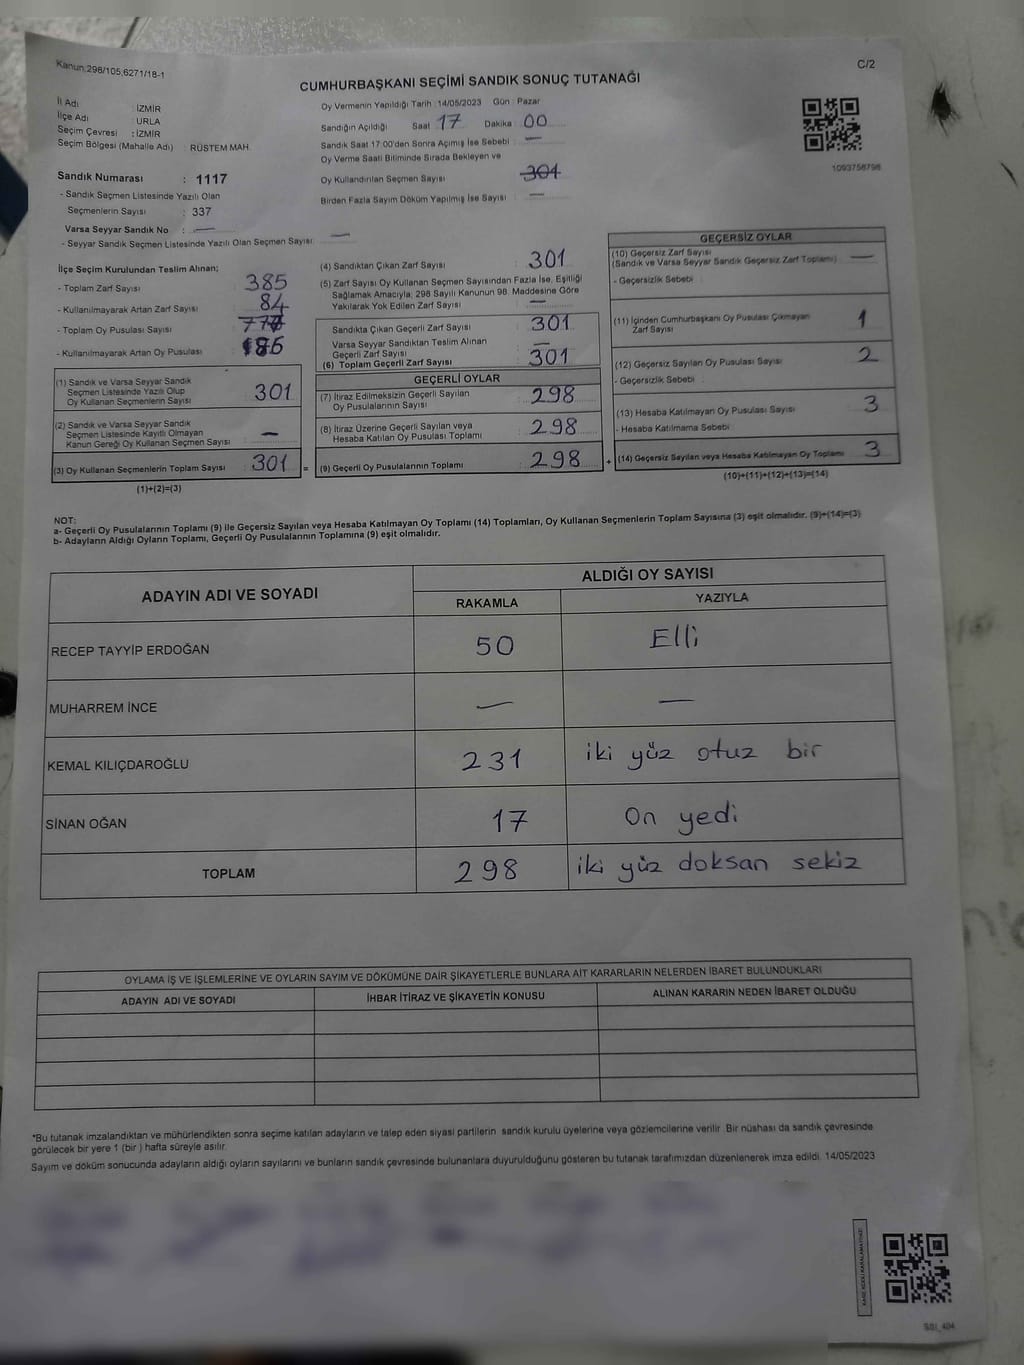 Kanun:298/105,6271/18-1
C/2
CUMHURBAŞKANI SEÇİMİ SANDIK SONUÇ TUTANAĞI
İl Adı : İZMİR
İlçe Adı : URLA
Seçim Çevresi : İZMİR
Seçim Bölgesi (Mahalle Adı) : RÜSTEM MAH.
Sandık Numarası : 1117
- Sandık Seçmen Listesinde Yazılı Olan
Seçmenlerin Sayısı : 337
Varsa Seyyar Sandık No : —
- Seyyar Sandık Seçmen Listesinde Yazılı Olan Seçmen Sayısı: —
Oy Vermenin Yapıldığı Tarih :14/05/2023 Gün : Pazar
Sandığın Açıldığı Saat 17 Dakika : 00
Sandık Saat 17:00'den Sonra Açımış İse Sebebi : —
Oy Verme Saati Bitiminde Sırada Bekleyen ve
Oy Kullandırılan Seçmen Sayısı : 301
Birden Fazla Sayım Döküm Yapılmış İse Sayısı : —
1093756798
İlçe Seçim Kurulundan Teslim Alınan;
- Toplam Zarf Sayısı : 385
- Kullanılmayarak Artan Zarf Sayısı : 84
- Toplam Oy Pusulası Sayısı :
- Kullanılmayarak Artan Oy Pusulası : 186
(1) Sandık ve Varsa Seyyar Sandık
Seçmen Listesinde Yazılı Olup
Oy Kullanan Seçmenlerin Sayısı : 301
(2) Sandık ve Varsa Seyyar Sandık
Seçmen Listesinde Kayıtlı Olmayan
Kanun Gereği Oy Kullanan Seçmen Sayısı : —
(3) Oy Kullanan Seçmenlerin Toplam Sayısı : 301 =
(1)+(2)=(3)
(4) Sandıktan Çıkan Zarf Sayısı : 301
(5) Zarf Sayısı Oy Kullanan Seçmen Sayısından Fazla İse, Eşitliği
Sağlamak Amacıyla; 298 Sayılı Kanunun 98. Maddesine Göre
Yakılarak Yok Edilen Zarf Sayısı : —
Sandıkta Çıkan Geçerli Zarf Sayısı : 301
Varsa Seyyar Sandıktan Teslim Alınan
Geçerli Zarf Sayısı : —
(6) Toplam Geçerli Zarf Sayısı : 301
GEÇERLİ OYLAR
(7) İtiraz Edilmeksizin Geçerli Sayılan
Oy Pusulalarının Sayısı : 298
(8) İtiraz Üzerine Geçerli Sayılan veya
Hesaba Katılan Oy Pusulası Toplamı : 298
(9) Geçerli Oy Pusulalarının Toplamı : 298 +
GEÇERSİZ OYLAR
(10) Geçersiz Zarf Sayısı : —
(Sandık ve Varsa Seyyar Sandık Geçersiz Zarf Toplamı)
- Geçersizlik Sebebi :
(11) İçinden Cumhurbaşkanı Oy Pusulası Çıkmayan
Zarf Sayısı : 1
(12) Geçersiz Sayılan Oy Pusulası Sayısı : 2
- Geçersizlik Sebebi :
(13) Hesaba Katılmayan Oy Pusulası Sayısı : 3
- Hesaba Katılmama Sebebi :
(14) Geçersiz Sayılan veya Hesaba Katılmayan Oy Toplamı : 3
(10)+(11)+(12)+(13)=(14)
NOT:
a- Geçerli Oy Pusulalarının Toplamı (9) ile Geçersiz Sayılan veya Hesaba Katılmayan Oy Toplamı (14) Toplamları, Oy Kullanan Seçmenlerin Toplam Sayısına (3) eşit olmalıdır. (9)+(14)=(3)
b- Adayların Aldığı Oyların Toplamı, Geçerli Oy Pusulalarının Toplamına (9) eşit olmalıdır.
ADAYIN ADI VE SOYADI
ALDIĞI OY SAYISI
RAKAMLA YAZIYLA
RECEP TAYYİP ERDOĞAN 50 Elli
MUHARREM İNCE — —
KEMAL KILIÇDAROĞLU 231 iki yüz otuz bir
SİNAN OĞAN 17 On yedi
TOPLAM 298 iki yüz doksan sekiz
OYLAMA İŞ VE İŞLEMLERİNE VE OYLARIN SAYIM VE DÖKÜMÜNE DAİR ŞİKAYETLERLE BUNLARA AİT KARARLARIN NELERDEN İBARET BULUNDUKLARI
ADAYIN ADI VE SOYADI İHBAR İTİRAZ VE ŞİKAYETİN KONUSU ALINAN KARARIN NEDEN İBARET OLDUĞU
*Bu tutanak imzalandıktan ve mühürlendikten sonra seçime katılan adayların ve talep eden siyasi partilerin sandık kurulu üyelerine veya gözlemcilerine verilir. Bir nüshası da sandık çevresinde
görülecek bir yere 1 (bir ) hafta süreyle asılır.
Sayım ve döküm sonucunda adayların aldığı oyların sayılarını ve bunların sandık çevresinde bulunanlara duyurulduğunu gösteren bu tutanak tarafımızdan düzenlenerek imza edildi. 14/05/2023